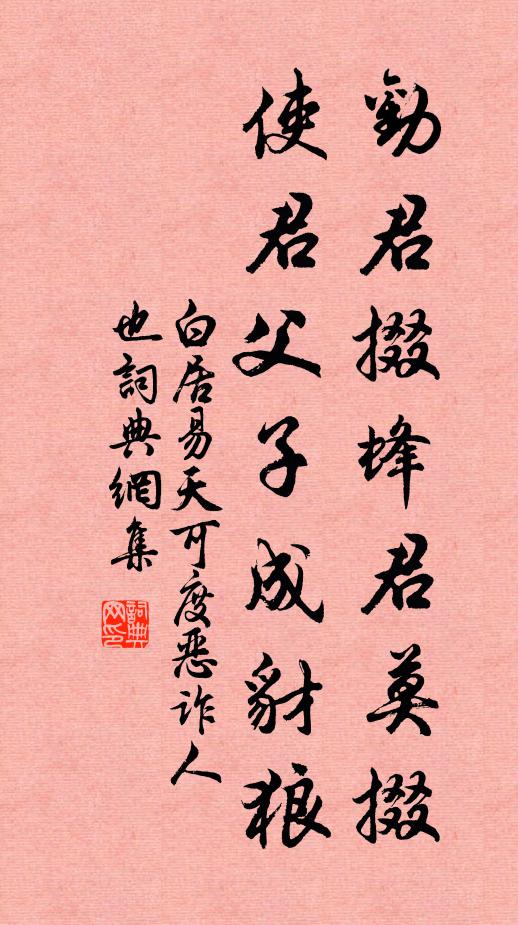 勸君掇蜂君莫掇
使君父子成豺狼
白居易天可度惡詐人
也詞典網集
詞典
網印